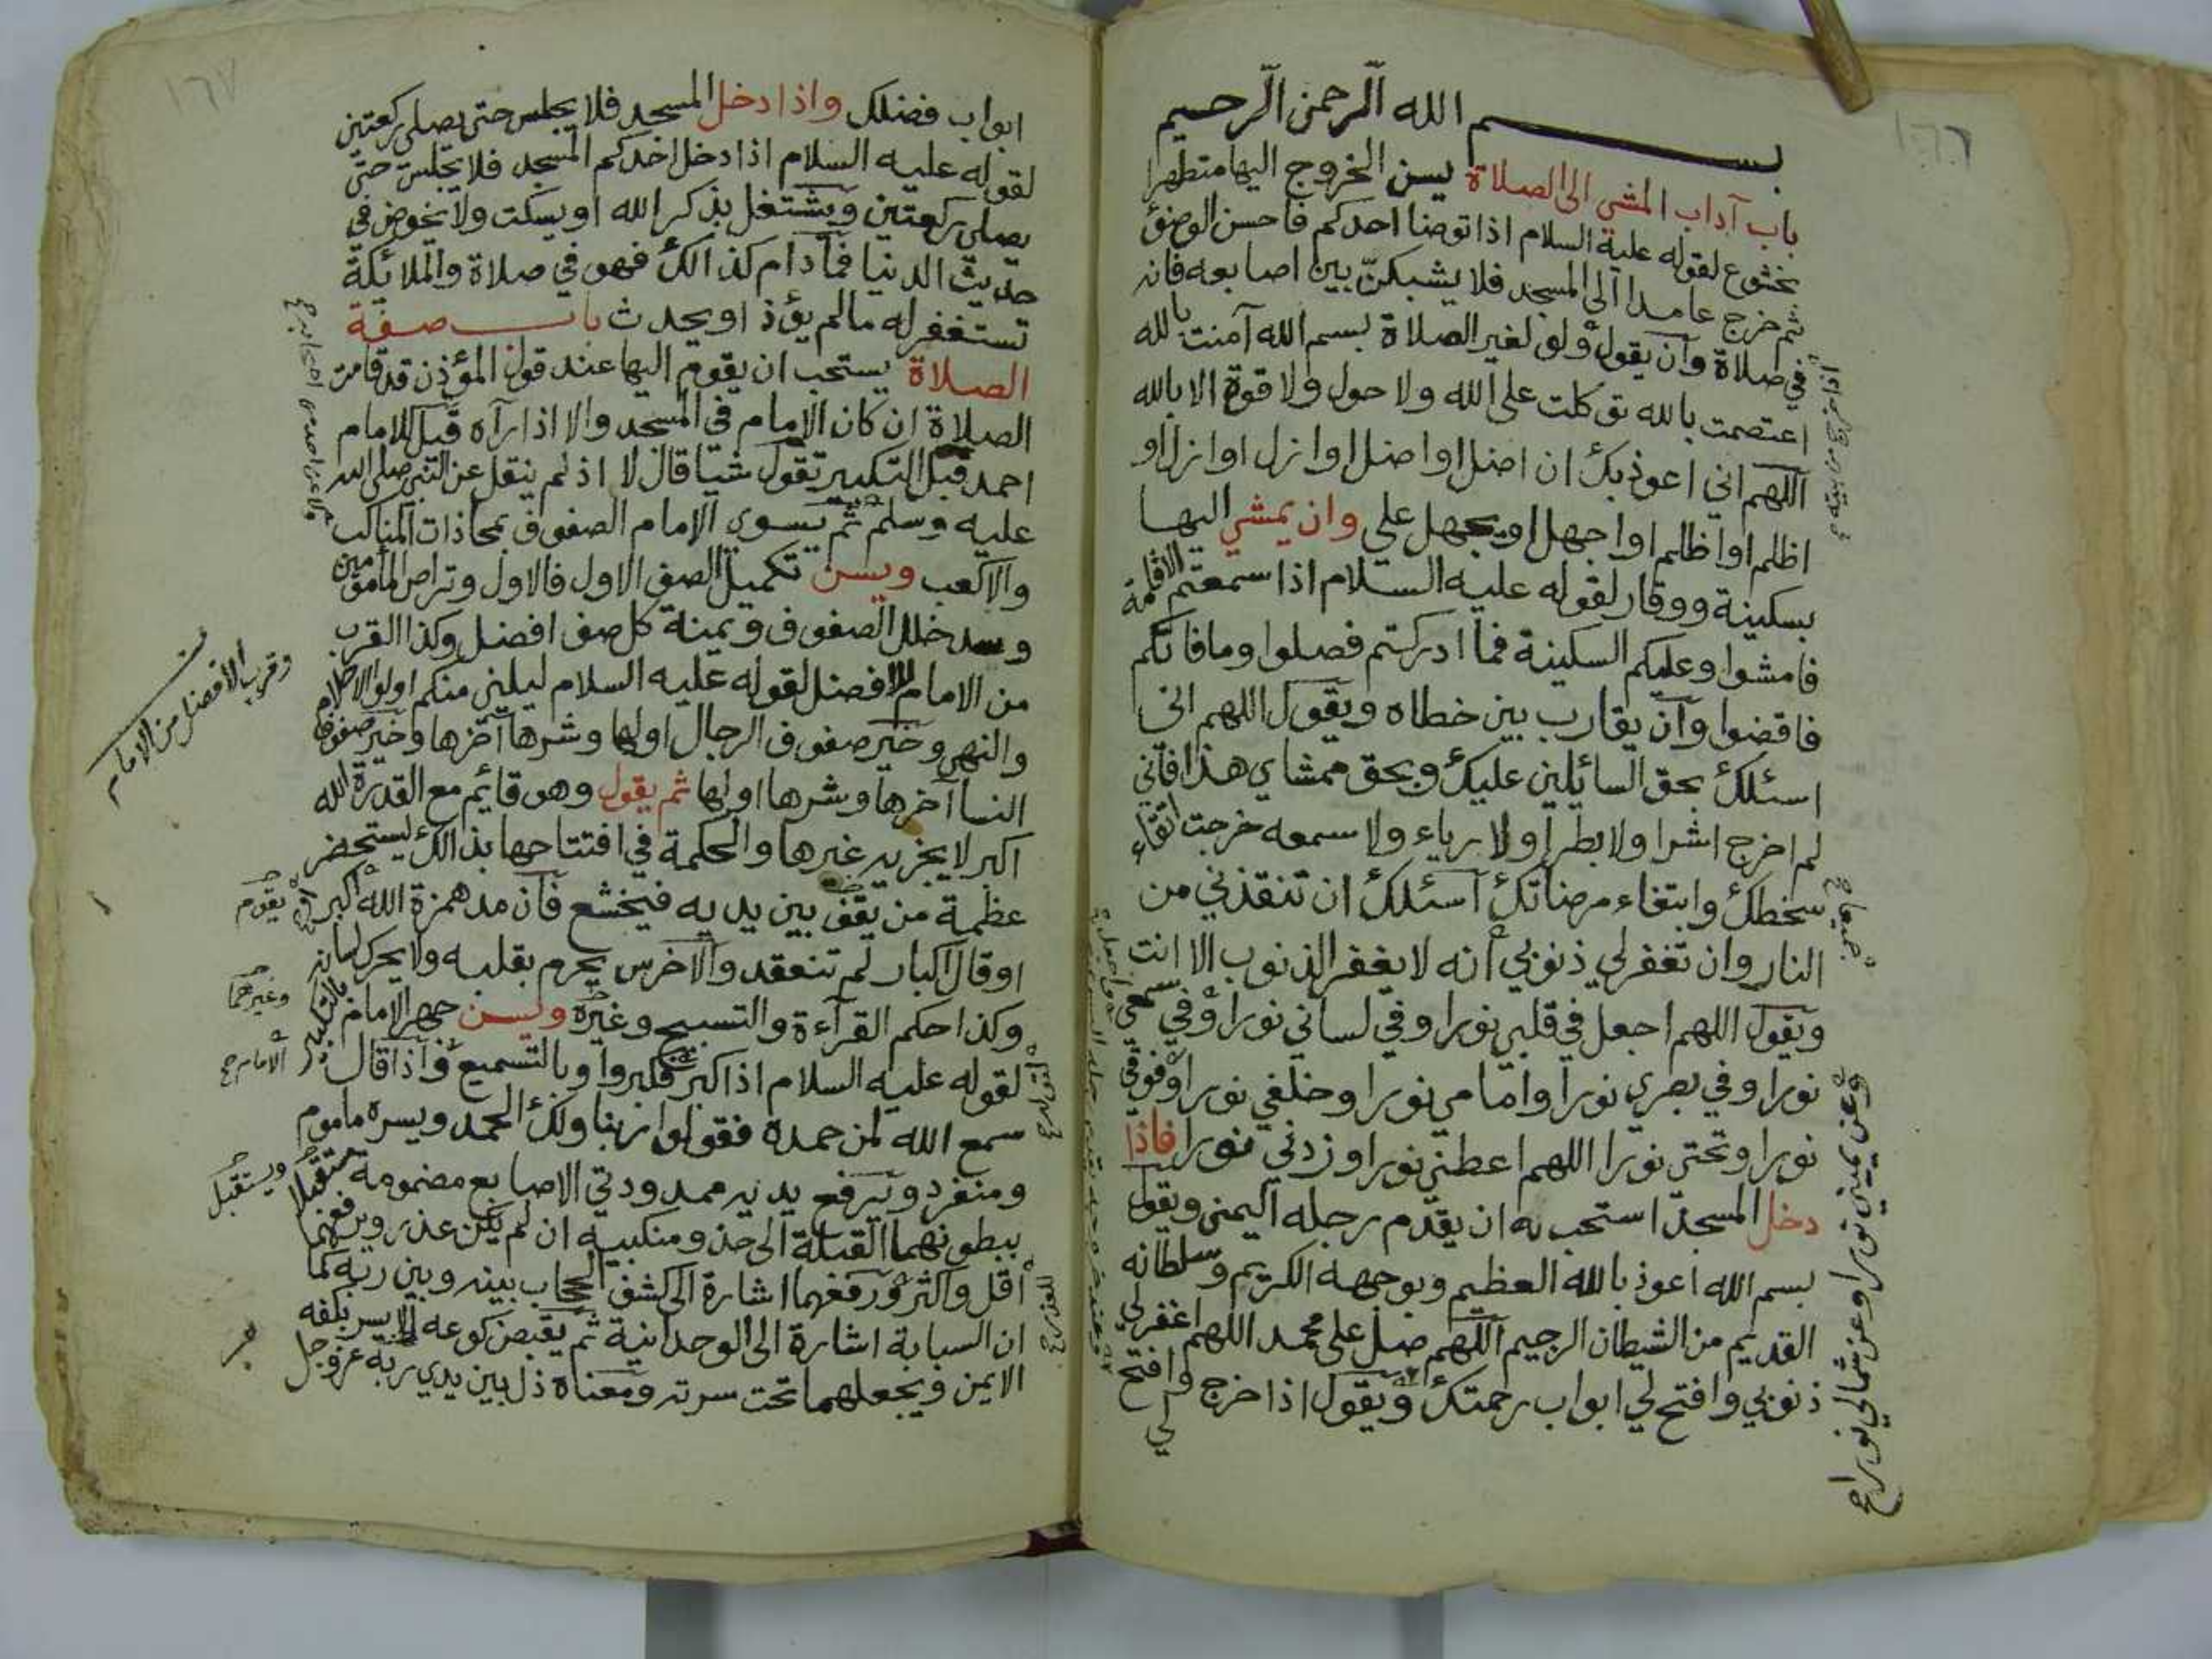 ١٦٦
بسم الله الرحمن الرحيم
باب آداب المشي الى الصلاة يسن الخروج اليها متطهرا
بخشوع لقوله عليه السلام اذا توضا احدكم فاحسن الوضؤ
ثم خرج عامدا الى المسجد فلا يشبكن بين اصابعه فانه
في صلاة وان يقول ولو لغير الصلاة بسم الله آمنت بالله
اعتصمت بالله توكلت على الله ولا حول ولا قوة الا بالله
اللهم اني اعوذ بك ان اضل او اضل او ازل او ازل او
اظلم او اظلم او اجهل او يجهل علي وان يمشي اليها
بسكينة ووقار لقوله عليه السلام اذا سمعتم الاقامة
فامشوا وعليكم السكينة فما ادركتم فصلوا وما فاتكم
فاقضوا وان يقارب بين خطاه ويقول اللهم اني
اسئلك بحق السايلين عليك وبحق ممشاي هذا فاني
لم اخرج اشرا ولا بطرا ولا رياء ولا سمعه خرجت اتقاء
سخطك وابتغاء مرضاتك اسئلك ان تنقذني من
النار وان تغفر لي ذنوبي انه لا يغفر الذنوب الا انت
ويقول اللهم اجعل في قلبي نورا وفي لساني نورا وفي سمعي
نورا وفي بصري نورا وامامي نورا وخلفي نورا وفوقي
نورا وتحتي نورا اللهم اعطني نورا وزدني نورا فاذا
دخل المسجد استحب له ان يقدم رجله اليمنى ويقول
بسم الله اعوذ بالله العظيم وبوجهه الكريم وسلطانه
القديم من الشيطان الرجيم اللهم صل على محمد اللهم اغفر لي
ذنوبي وافتح لي ابواب رحمتك ويقول اذا خرج وافتح
لي
جميعا ح
وعن يميني نورا وعن شمالي نورا ح
١٦٧
ابواب فضلك واذا دخل المسجد فلا يجلس حتى يصلي ركعتين
لقوله عليه السلام اذا دخل احدكم المسجد فلا يجلس حتى
يصلي ركعتين ويشتغل بذكر الله او يسكت ولا يخوض في
حديث الدنيا فما دام كذالك فهو في صلاة والملائكة
تستغفر له ما لم يؤذ او يحدث باب صفة
الصلاة يستحب ان يقوم اليها عند قول المؤذن قد قامت
الصلاة ان كان الامام في المسجد والا اذا رآه قيل للامام
احمد قبل التكبير تقول شيا قال لا اذ لم ينقل عن النبي صلى الله
عليه وسلم ثم يسوي الامام الصفوف بمحاذات المناكب
والاكعب ويسن تكميل الصف الاول فالاول وتراص المامومين
وسد خلل الصفوف ويمنة كل صف افضل وكذا القرب
من الامام للافضل لقوله عليه السلام ليليني منكم اولوا الاحلام
والنهى وخير صفوف الرجال اولها وشرها آخرها وخير صفوف
النسا آخرها وشرها اولها ثم يقول وهو قايم مع القدرة الله
اكبر لا يجزيه غيرها والحكمة في افتتاحها بذالك ليستحضر
عظمة من يقف بين يديه فيخشع فان مد همزة الله اكبر
او قال اكبار لم تنعقد والاخرس يحرم بقلبه ولا يحرك لسانه
وكذا حكم القرآءة والتسبيح وغيره ويسن جهر الامام بالتكبير
لقوله عليه السلام اذا كبر فكبروا وبالتسميع واذا قال
سمع الله لمن حمده فقولوا ربنا ولك الحمد ويسره ماموم
ومنفرد ويرفع يديه ممدودتي الاصابع مضمومة مستقبلا
ببطونهما القبلة الى حذو منكبيه ان لم يكن عذر ويرفعهما
اقل واكثر ورفعهما اشارة الى كشف الحجاب بينه وبين ربه كما
ان السبابة اشارة الى الوحدانية ثم يقبض كوعه الايسر بكفه
الايمن ويجعلهما تحت سرته ومعناه ذل بين يدي ربه عز وجل
وقرب الافضل من الامام
يقوم
وغيرهما
الامام ح
ويستقبل
للعذر ح